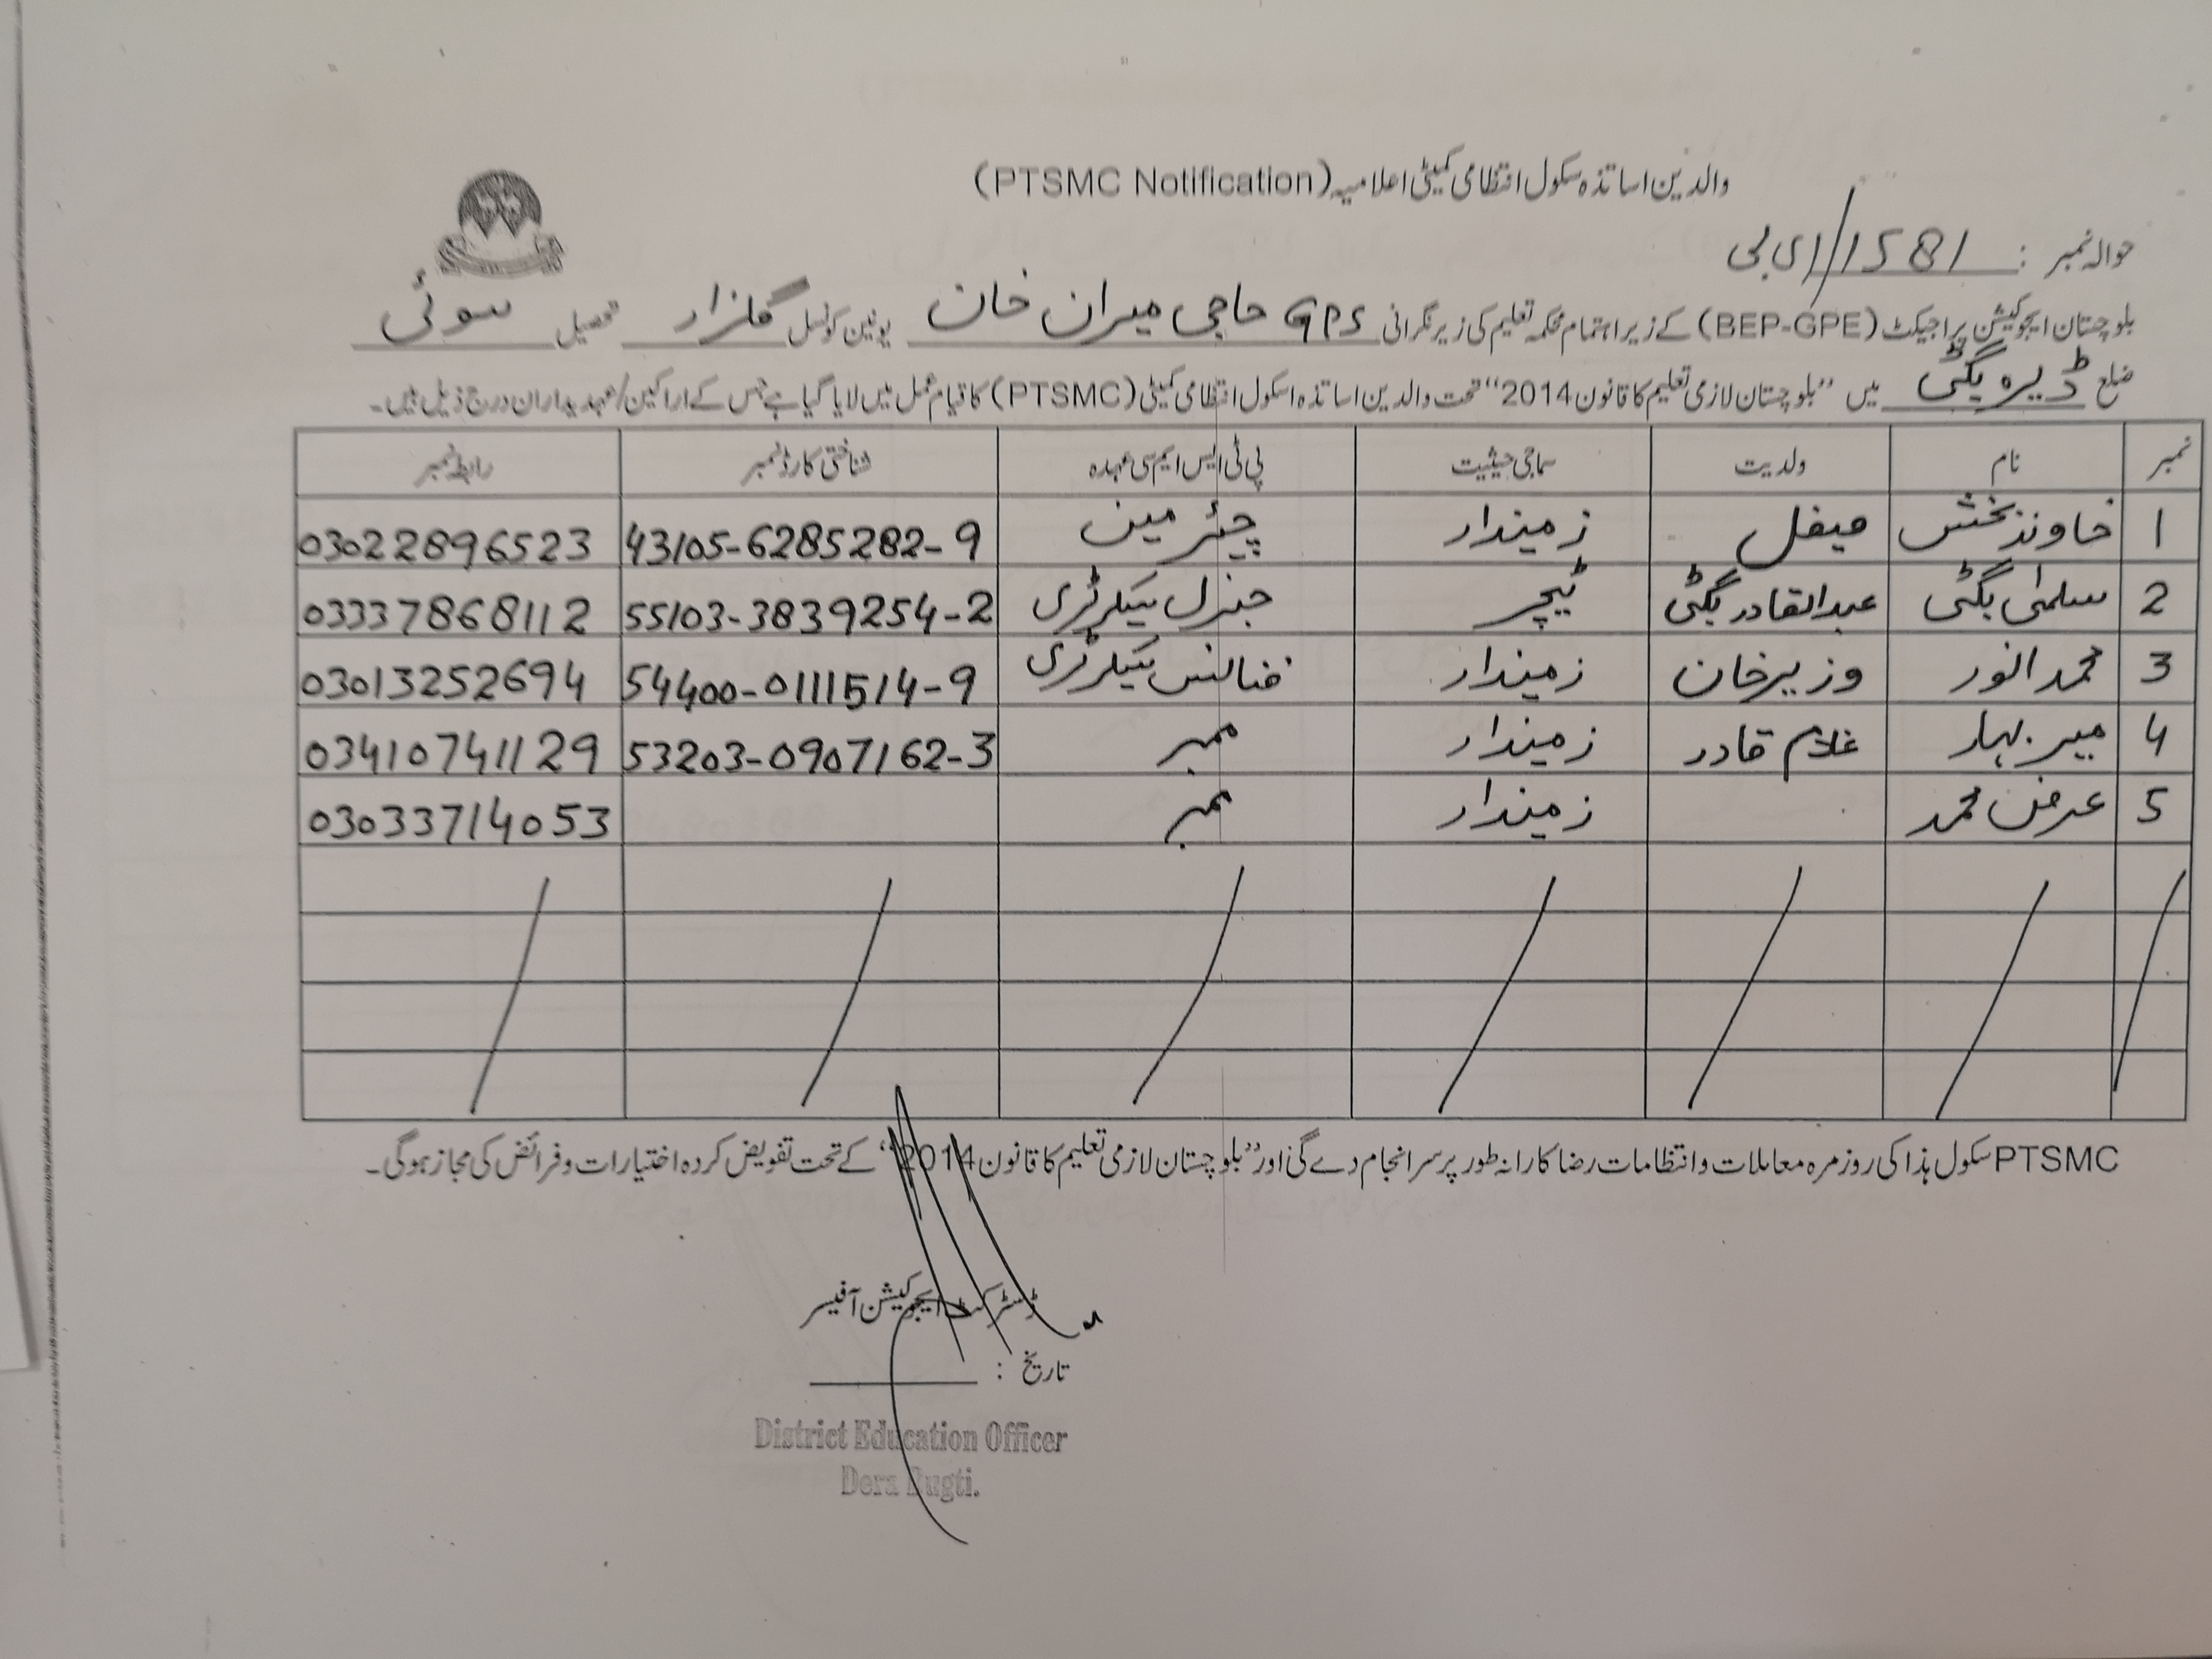 والدین اساتذہ سکول انتظامی کمیٹی اعلامیہ (PTSMC Notification)
حوالہ نمبر : 1581/ای بی
بلوچستان ایجوکیشن پراجیکٹ (BEP-GPE) کے زیر اہتمام محکمہ تعلیم کی زیر نگرانی GPS حاجی میران خان یونین کونسل گلزار تحصیل سوئی
ضلع ڈیرہ بگٹی میں ”بلوچستان لازمی تعلیم کا قانون 2014“ تحت والدین اساتذہ اسکول انتظامی کمیٹی (PTSMC) کا قیام عمل میں لایا گیا ہے جس کے اراکین/عہدیداران درج ذیل ہیں۔
نمبر نام ولدیت سماجی حیثیت پی ٹی ایس ایم سی عہدہ شناختی کارڈ نمبر رابطہ نمبر
1 خاوند بخش زمیندار چیئر مین 43105-6285282-9 03022896523
2 سلمیٰ بگٹی عبدالقادر بگٹی ٹیچر جنرل سیکرٹری 55103-3839254-2 03337868112
3 محمد انور وزیر خان زمیندار فنانس سیکرٹری 54400-0111514-9 03013252694
4 میر بہار غلام قادر زمیندار ممبر 53203-0907162-3 03410741129
5 عرض محمد زمیندار ممبر 03033714053
PTSMC سکول ہذا کی روزمرہ معاملات و انتظامات رضا کارانہ طور پر سرانجام دے گی اور ”بلوچستان لازمی تعلیم کا قانون 2014“ کے تحت تفویض کردہ اختیارات و فرائض کی مجاز ہوگی۔
ڈسٹرکٹ ایجوکیشن آفیسر
تاریخ :
District Education Officer
Dera Bugti.